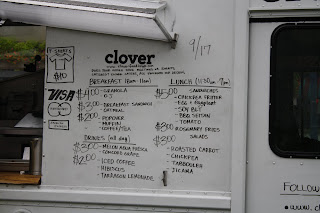 T-SHIRTS
$10
VISA
clover
9/17
BREAKFAST (8am-11am)
$4.00 - GRANOLA
- O.J.
$3.00 - BREAKFAST SANDWICH
- OATMEAL
$2.00 - POPOVER
- MUFFIN
- COFFEE/TEA
DRINKS (all day)
$3.00 - MELON AGUA FRESCA
- CONCORD GRAPE
$2.00 - ICED COFFEE
- HIBISCUS
- TARRAGON LEMONADE
LUNCH
$5.00 - SANDWICHES
- CHICKPEA FRITTER
- EGG + Eggplant
- SOY BLT
- BBQ SEITAN
- TOMATO
$3.00 - ROSEMARY FRIES
- SALADS
- ROASTED CARROT
- CHICKPEA
- TABBOULEH
- JICAMA
FOLLOW